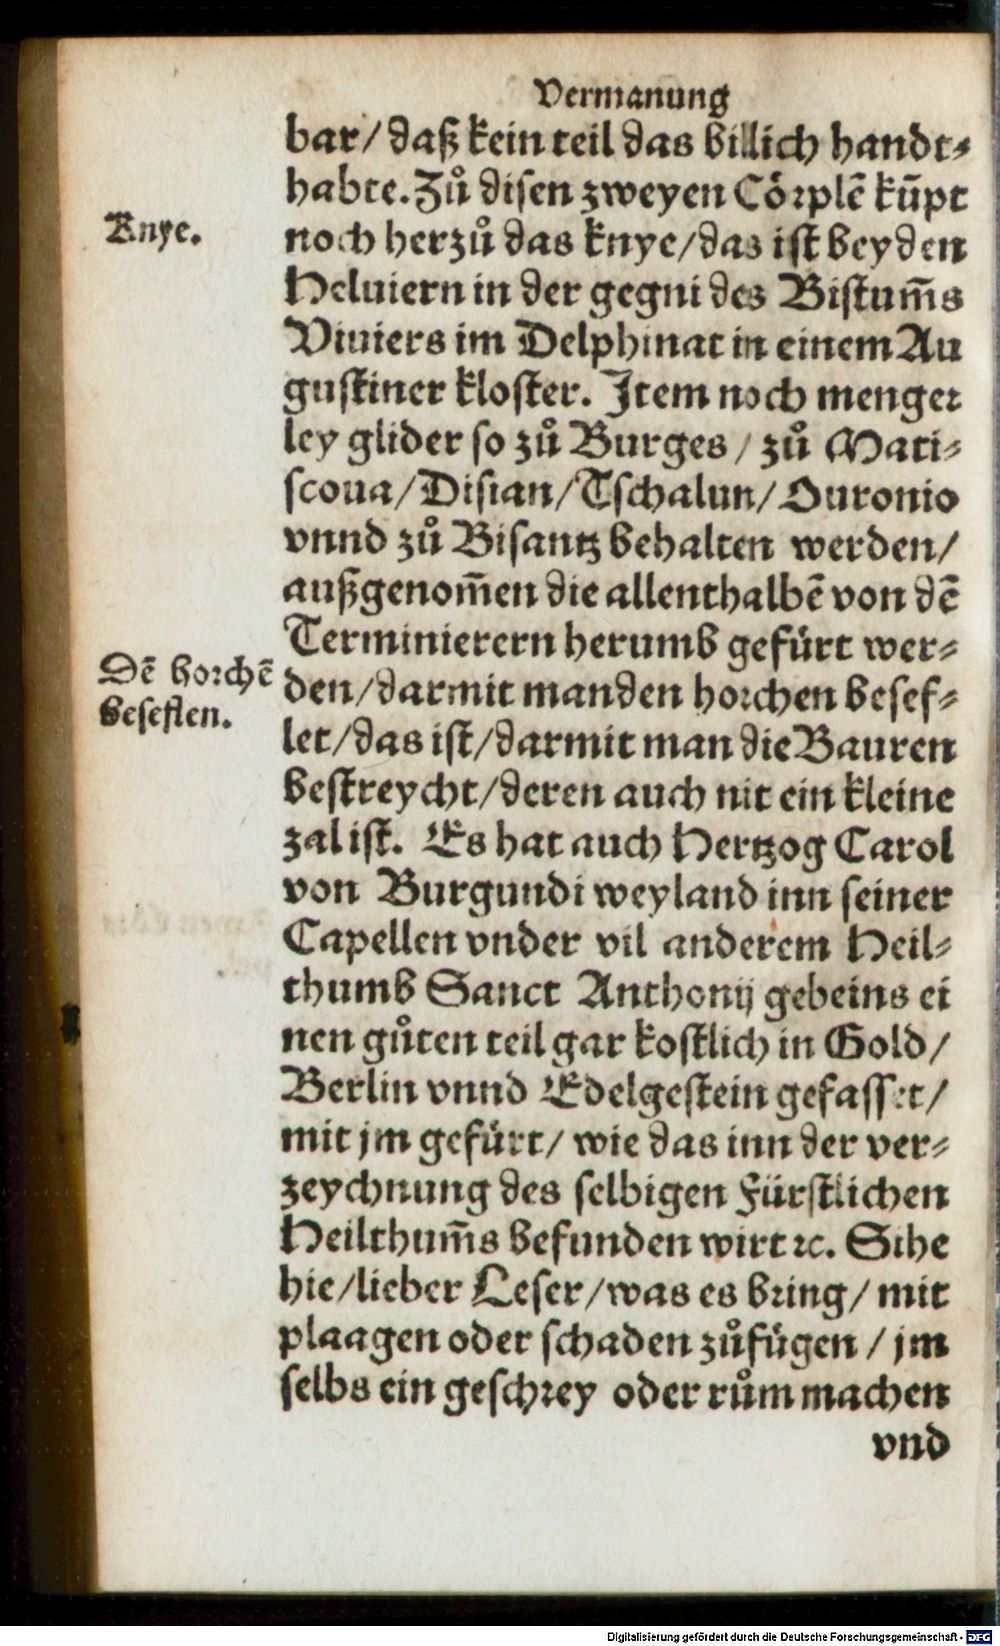 Vermanung
bar/ daß kein teil das billich handt⸗
habte. Zů disen zweyen Cörplē kūpt
Knye.
noch herzů das knye/ das ist bey den
Heluiern in der gegni des Bistum̄s
Viuiers im Delphinat in einem Au
gustiner kloster. Item noch menger
ley glider so zů Burges / zů Mati⸗
scoua/ Disian/ Tschalun/ Ouronio
vnnd zů Bisantz behalten werden/
außgenom̄en die allenthalbē von dē
Terminierern herumb gefürt wer⸗
Dē horchē
beseflen.
den/ darmit man den horchen besef⸗
let/ das ist/ darmit man die Bauren
bestreycht/ deren auch nit ein kleine
zal ist. Es hat auch Hertzog Carol
von Burgundi weyland inn seiner
Capellen vnder vil anderem Heil⸗
thumb Sanct Anthonij gebeins ei
nen gůten teil gar kostlich in Gold/
Berlin vnnd Edelgestein gefasset/
mit jm gefürt/ wie das inn der ver⸗
zeychnung des selbigen Fürstlichen
Heilthum̄s befunden wirt ꝛc. Sihe
hie/ lieber Leser/ was es bring/ mit
plaagen oder schaden zůfügen / jm
selbs ein geschrey oder rům machen
vnd
Digitalisierung gefördert durch die Deutsche Forschungsgemeinschaft - DFG